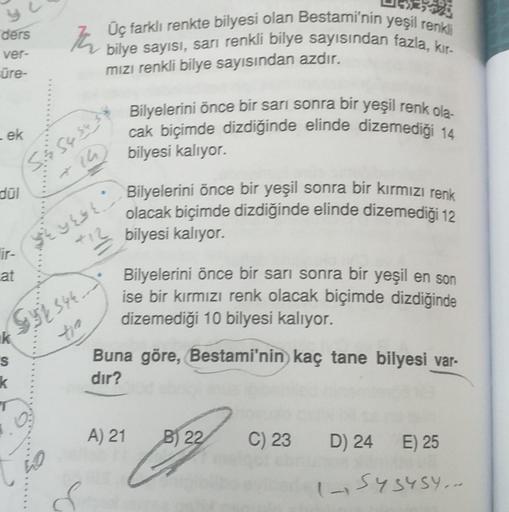 ders
ver-
üre-
ek
dül
ir-
at
k
s
k
7.
Üç farklı renkte bilyesi olan Bestami'nin yeşil renkli
bilye sayısı, sarı renkli bilye sayısından fazla, kır-
mızı renkli bilye sayısından azdır.
Bilyelerini önce bir sarı sonra bir yeşil renk ola-
cak biçimde dizdiğinde elinde dizemediği 14
bilyesi kalıyor.
+14
Bilyelerini önce bir yeşil sonra bir kırmızı renk
olacak biçimde dizdiğinde elinde dizemediği 12
bilyesi kalıyor.
+12
Bilyelerini önce bir sarı sonra bir yeşil en son
ise bir kırmızı renk olacak biçimde dizdiğinde
dizemediği 10 bilyesi kalıyor.
+10
Buna göre, Bestami'nin kaç tane bilyesi var-
dır?
A) 21 B) 22 C) 23 D) 24 E) 25
1→ SYSYSY...